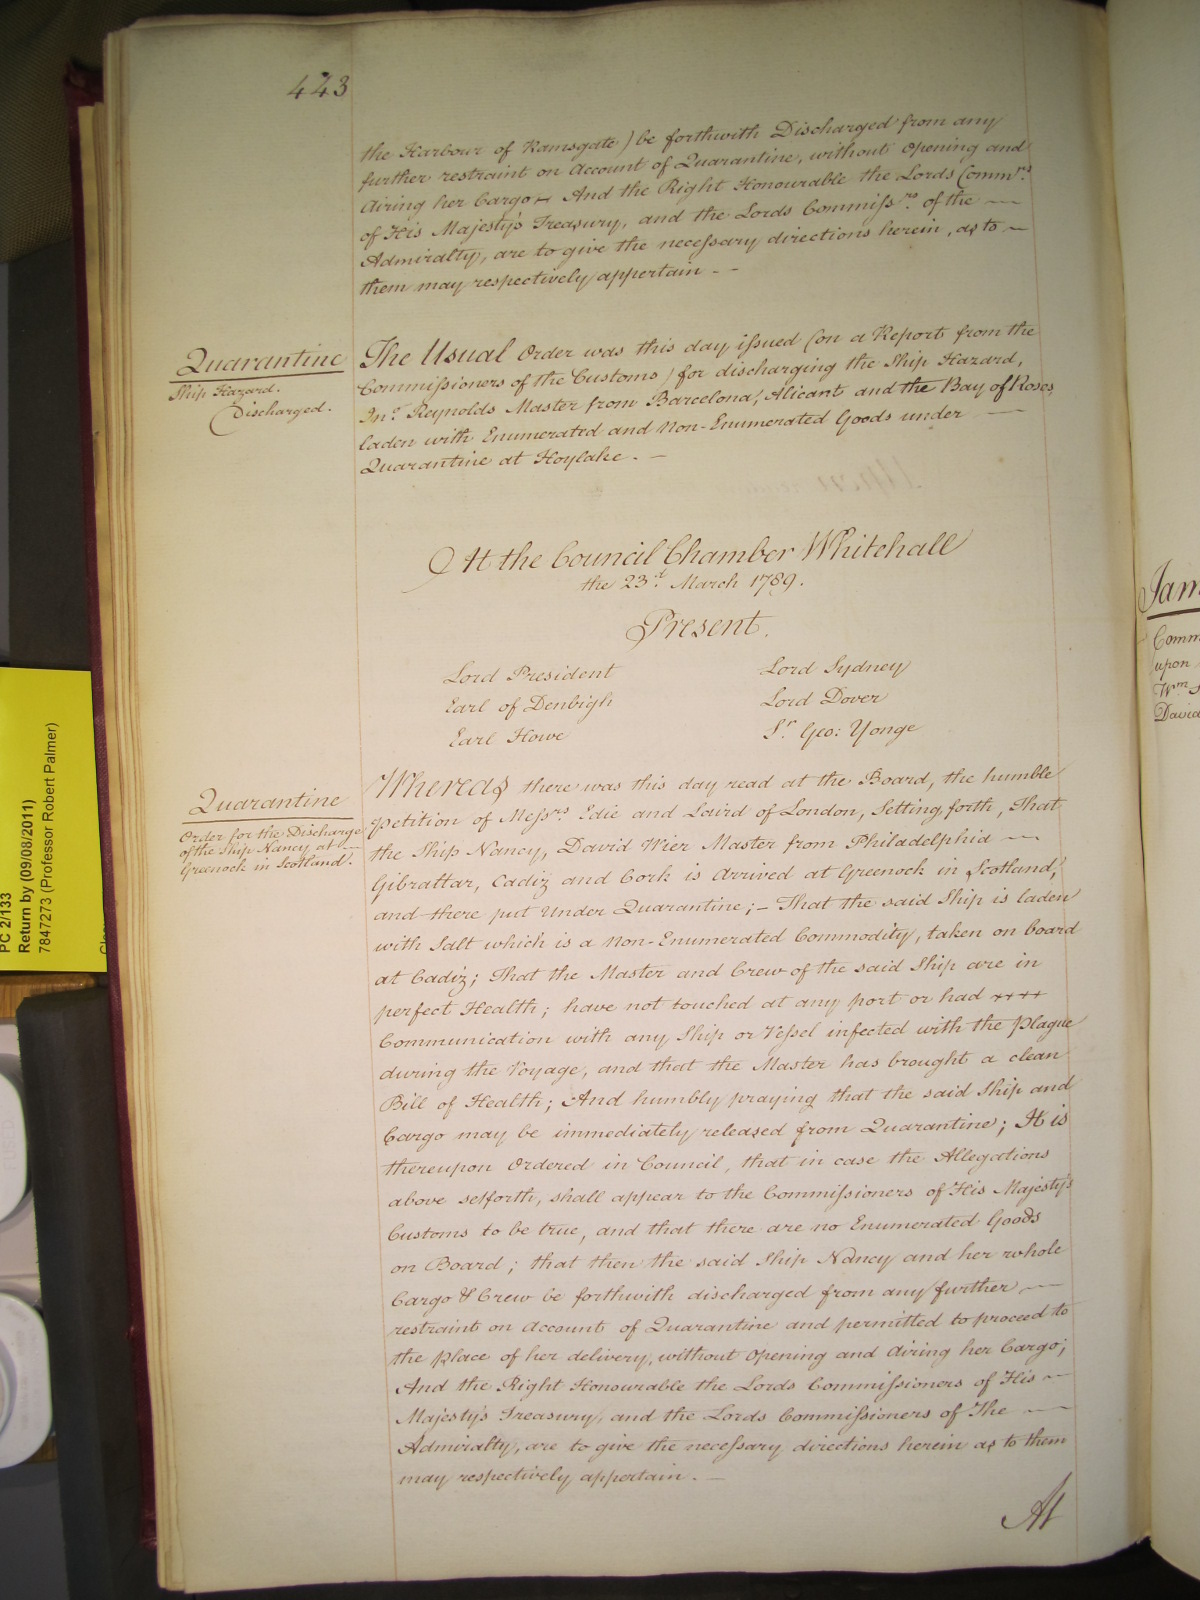 443
the Harbour of Ramsgate) be forthwith Discharged from any
further restraint on Account of Quarantine, without Opening and
Airing her Cargo – And the Right Honourable the Lords Commrs.
of His Majesty's Treasury, and the Lords Commissrs. of the —
Admiralty, are to give the necessary directions herein, as to —
them may respectively appertain - -
Quarantine
Ship Hazard.
Discharged.
The Usual Order was this day issued (on a Report from the
Commissioners of the Customs) for discharging the Ship Hazard,
Jno. Reynolds Master from Barcelona, Alicant and the Bay of Roses
laden with Enumerated and Non-Enumerated Goods under —
Quarantine at Hoylake. —
At the Council Chamber Whitehall
the 23d. March 1789.
Present.
Lord President
Earl of Denbigh
Earl Howe
Lord Sydney
Lord Dover
Sr. Geo: Yonge
Quarantine
Order for the Discharge
of the Ship Nancy at —
Greenock in Scotland.
Whereas there was this day read at the Board, the humble
Petition of Messrs. Edie and Laird of London, Setting forth, That
the Ship Nancy, David Wier Master from Philadelphia —
Gibraltar, Cadiz and Cork is Arrived at Greenock in Scotland,
and there put Under Quarantine; – That the said Ship is laden
with Salt which is a Non-Enumerated Commodity, taken on board
at Cadiz; That the Master and Crew of the said Ship are in
perfect Health; have not touched at any port or had ++++
Communication with any Ship or Vessel infected with the Plague
during the Voyage, and that the Master has brought a clean
Bill of Health; And humbly praying that the said Ship and
Cargo may be immediately released from Quarantine; It is
thereupon Ordered in Council, that in case the Allegations
above setforth, shall appear to the Commissioners of His Majesty's
Customs to be true, and that there are no Enumerated Goods
on Board; that then the said Ship Nancy and her whole
Cargo & Crew be forthwith discharged from any further —
restraint on Account of Quarantine and permitted to proceed to
the place of her delivery, without Opening and Airing her Cargo;
And the Right Honourable the Lords Commissioners of His —
Majesty's Treasury, and the Lords Commissioners of The —
Admiralty, are to give the necessary directions herein as to them
may respectively appertain. —
At
PC 2/133
Return by (09/08/2011)
7847273 (Professor Robert Palmer)
Jam
Comm
upon
Wm. S
David